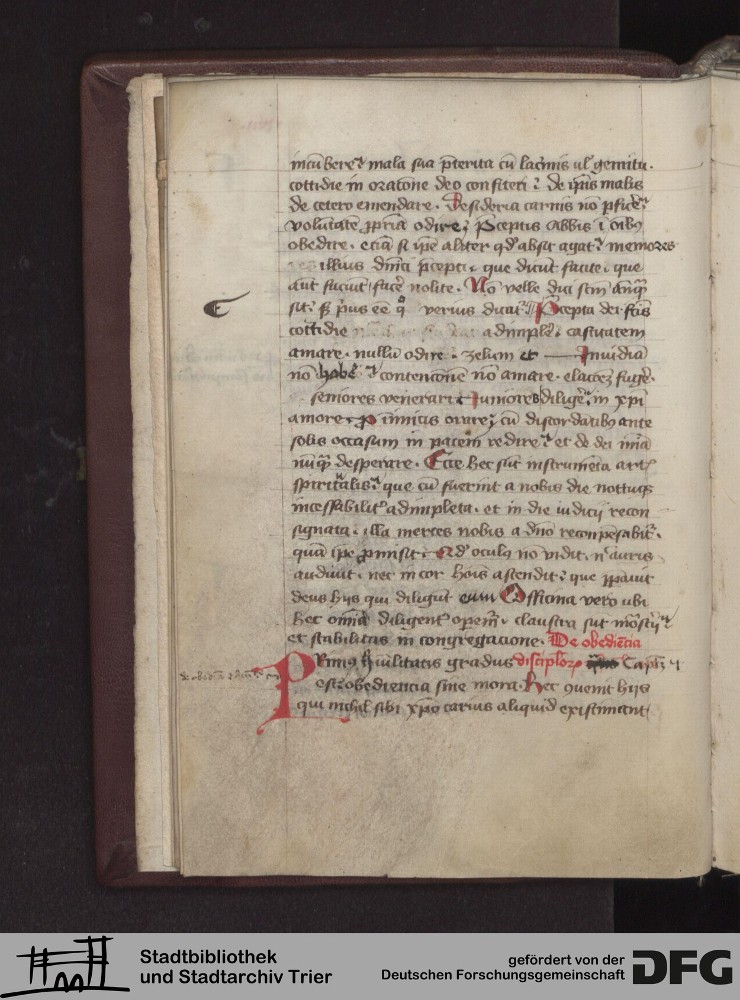 incu̅bere⁊ mala sua p̅terita cu̅ lac̅mis ul̕ gemitu.
cottidie in orato̅ne deo confiteri ⁊ de ip̅is malis
de cetero emendare. Desideria carnis no̅ p̅fice̅
volu̅tate̅ ꝓpria̅ odire⁊ p̅ceptis abbis i̅ o̅ibꝰ
obedire. etia̅ si ip̅e aliter qd̕ absit agat⁊ memores
illius d̅nici p̅cepti. que dicu̅t facite. que
aut̅ faciu̅t face̅ nolite. No̅ velle dici sc̅m an̅qꝫ
sit. sꝫ p̅us e̅e qͦ verius dicat̕ P̅cepta dei f̅tis
cottidie adimple̅ castitatem
amare. nullu̅ odire. zelum et Invidia̅
no̅ habe̅ ⁊ contencione̅ no̅ amare. elac̅ez fuge̅.
seniores venerari. Iuniores dilige̅. in xp̅i
amore. ꝓ inimicis orare⁊ cu̅ discorda̅tibꝰ ante
solis occasum in pacem redire⁊ et de dei mi̅a
nu̅qꝫ desperare. Ecce hec su̅t instrume̅ta art̕
spiritalis. que cu̅ fuerint a nobis die noctuqꝫ
incessabilit̕ adimpleta. et in die iudicij recon
signata. illa merces nobis a d̅no reco̅pe̅sabit̕.
qua̅ ip̅e ꝓmisit. Qd̕ oculꝰ no̅ vidit. n̅ auris
audiuit. nec in cor ho̅is ascendit. que p̅pauit
deus hijs qui diligu̅t eum Officina vero ubi
hec om̅ia diligent̕ opem̅. claustra su̅t mo̅st̅ij
et stabilitas in congregacione. De obedie̅cia
Primꝰ hu̅ilitatis gradus disciploꝝ Cap̅m
est obediencia sine mora. Hec 9uenit hijs
qui nichil sibi xp̅o carius aliquid existimant
Stadtbibliothek
und Stadtarchiv Trier
gefördert von der
Deutschen Forschungsgemeinschaft
DFG